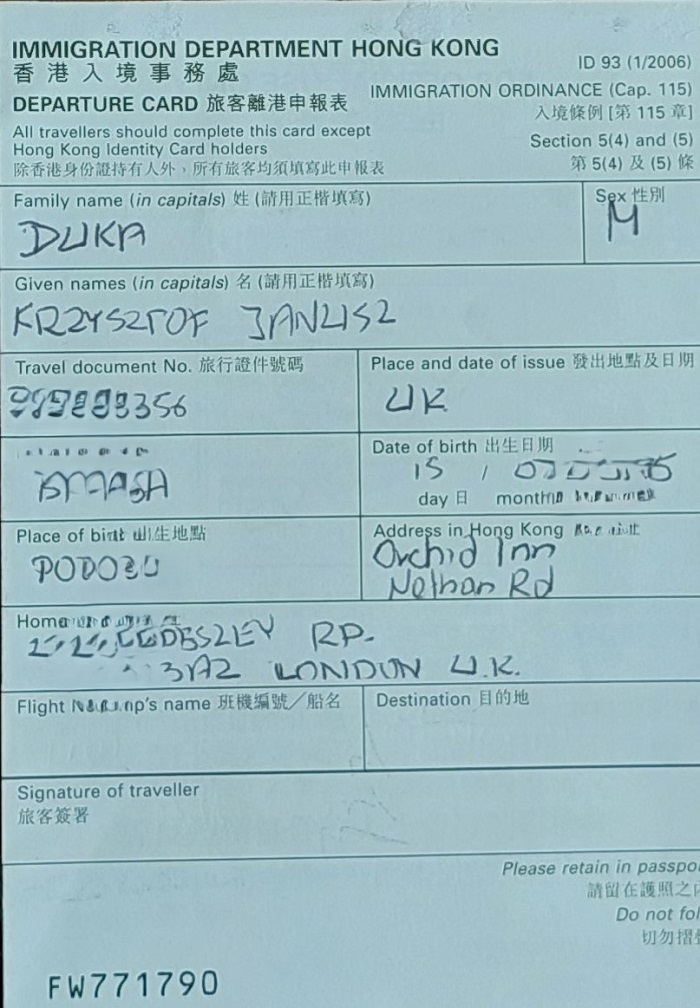 IMMIGRATION DEPARTMENT HONG KONG
香港入境事務處
ID 93 (1/2006)
DEPARTURE CARD 旅客離港申報表
IMMIGRATION ORDINANCE (Cap. 115)
入境條例 [第 115 章]
All travellers should complete this card except
Hong Kong Identity Card holders
除香港身份證持有人外，所有旅客均須填寫此申報表
Section 5(4) and (5)
第 5(4) 及 (5) 條
Family name (in capitals) 姓 (請用正楷填寫)
DUKA
Sex 性別
M
Given names (in capitals) 名 (請用正楷填寫)
KRZYSZTOF JANUSZ
Travel document No. 旅行證件號碼
356
Place and date of issue 發出地點及日期
UK
Date of birth 出生日期
15 /
day 日 month
Place of birth 出生地點
Address in Hong Kong
Orchid Inn
Nathan Rd
Home
RD.
3AZ LONDON U.K.
Flight 's name 班機編號／船名
Destination 目的地
Signature of traveller
旅客簽署
Please retain in
請留在護照之
Do not
切勿摺
FW771790